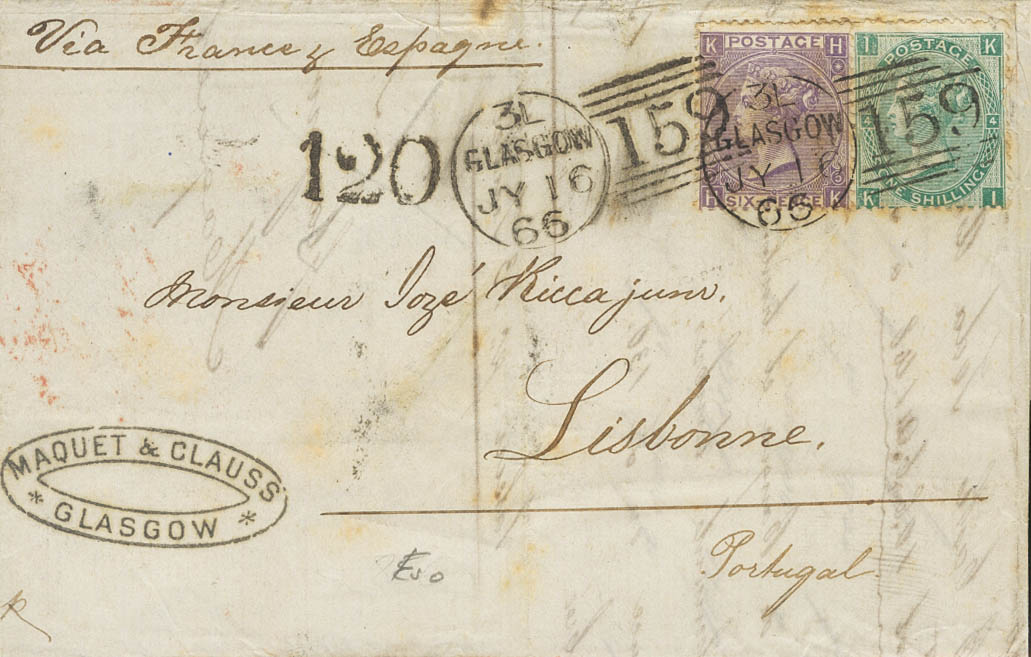 Via France & Espagne.
120
3L
GLASGOW
JY 16
66
159
K POSTAGE H
H SIX-PENCE K
3L
GLASGOW
JY 16
66
I POSTAGE K
4
K ONE SHILLING I
159
Monsieur Jozé Ricca junr.
Lisbonne.
Portugal.
MAQUET & CLAUSS
* GLASGOW *